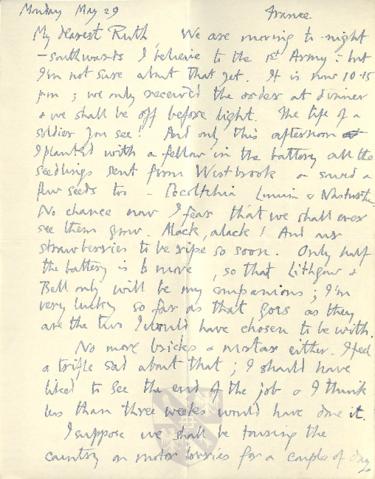 Monday May 29 France
My dearest Ruth, We are moving to-night
– southwards I believe to the 1st Army – but
I'm not sure about that yet. It is now 10-15
pm; we only received the order at dinner
& we shall be off before light. The life of a
soldier you see! And only this afternoon
I planted with a fellow in the battery all the
seedlings sent from Westbrook & sowed a
few seeds too – Nasturtium
No chance now I fear that we shall ever
see them grow. Alack, alack! And our
strawberries to be ripe so soon. Only half
the battery is to move, so that Lithgow &
Bell only will be my companions; I'm
very lucky so far as that goes as they
are the two I would have chosen to be with.
No more bricks & mortar either. I feel
a trifle sad about that; I should have
liked to see the end of the job & I think
less than three weeks would have done it.
I suppose we shall be touring the
country on motor lorries for a couple of days